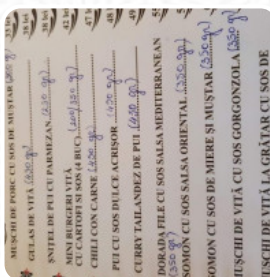 MUȘCHI DE PORC CU SOS DE MUȘTAR (350 g)
GULAȘ DE VITĂ (430 gr)
ȘNIȚEL DE PUI CU PARMEZAN (230 gr)
MENIU BURGERI VITĂ
CU CARTOFI ȘI SOS (4 BUC) (400/350 gr)
CHILI CON CARNE (430 gr)
PUI CU SOS DULCE ACRIȘOR (430 gr)
CURRY TAILANDEZ DE PUI (430 gr)
DORADA FILE CU SOS SALSA MEDITERRANEAN
(350 gr)
SOMON CU SOS SALSA ORIENTAL (350 gr)
SOMON CU SOS DE MIERE ȘI MUȘTAR (350 gr)
MUȘCHI DE VITĂ CU SOS GORGONZOLA (350
MUȘCHI DE VITĂ LA GRĂTAR CU SOS DE
38 lei
38 lei
42 lei
47 l
48
49